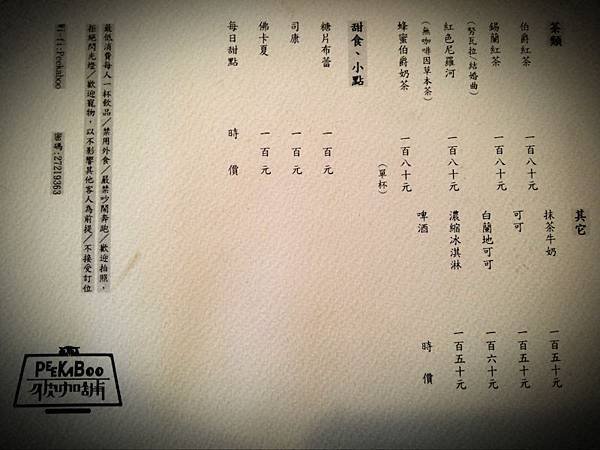 茶類
伯爵紅茶 一百八十元
錫蘭紅茶 一百八十元
(努瓦拉/結婚曲)
紅色尼羅河 一百八十元
(無咖啡因草本茶)
蜂蜜伯爵奶茶 一百八十元
(單杯)
其它
抹茶牛奶 一百五十元
可可 一百五十元
白蘭地可可 一百六十元
濃縮冰淇淋 一百五十元
啤酒 時價
甜食、小點
糖片布蕾 一百元
司康 一百元
佛卡夏 一百元
每日甜點 時價
最低消費每人一杯飲品/禁用外食/嚴禁吵鬧奔跑/歡迎拍照,
拒絕閃光燈/歡迎寵物,以不影響其他客人為前提/不接受訂位
Wi-fi:Peekaboo 密碼:27219363
PEEKABOO
皮咖舖